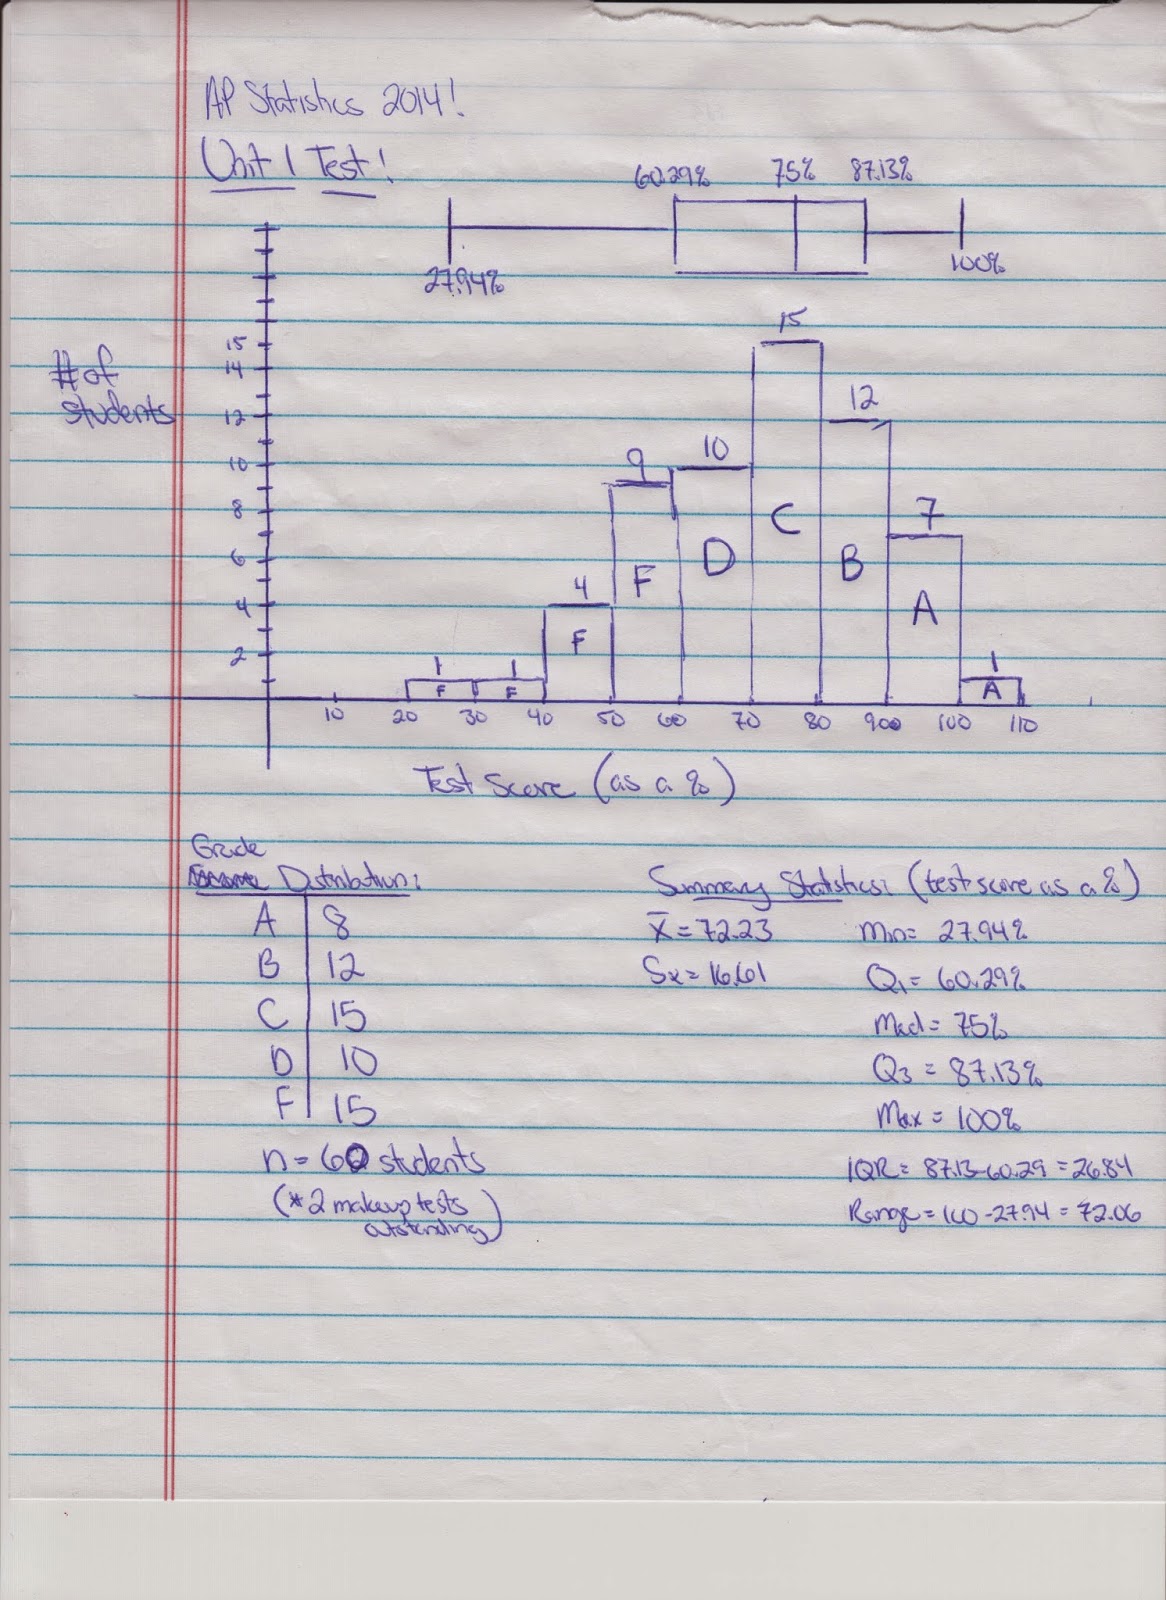 AP Statistics 2014!
Unit 1 Test!
60.29% 75% 87.13%
27.94% 100%
# of
students
15
14
12
10
8
6
4
2
1 1 4 9 10 15 12 7 1
F F F F D C B A A
10 20 30 40 50 60 70 80 900 100 110
Test Score (as a %)
Grade
Distribution:
A 8
B 12
C 15
D 10
F 15
n = 60 students
(*2 makeup tests
outstanding)
Summary Statistics: (test score as a %)
x̄ = 72.23
Sx = 16.61
Min = 27.94%
Q1 = 60.29%
Med = 75%
Q3 = 87.13%
Max = 100%
IQR = 87.13-60.29 = 26.84
Range = 100-27.94 = 72.06